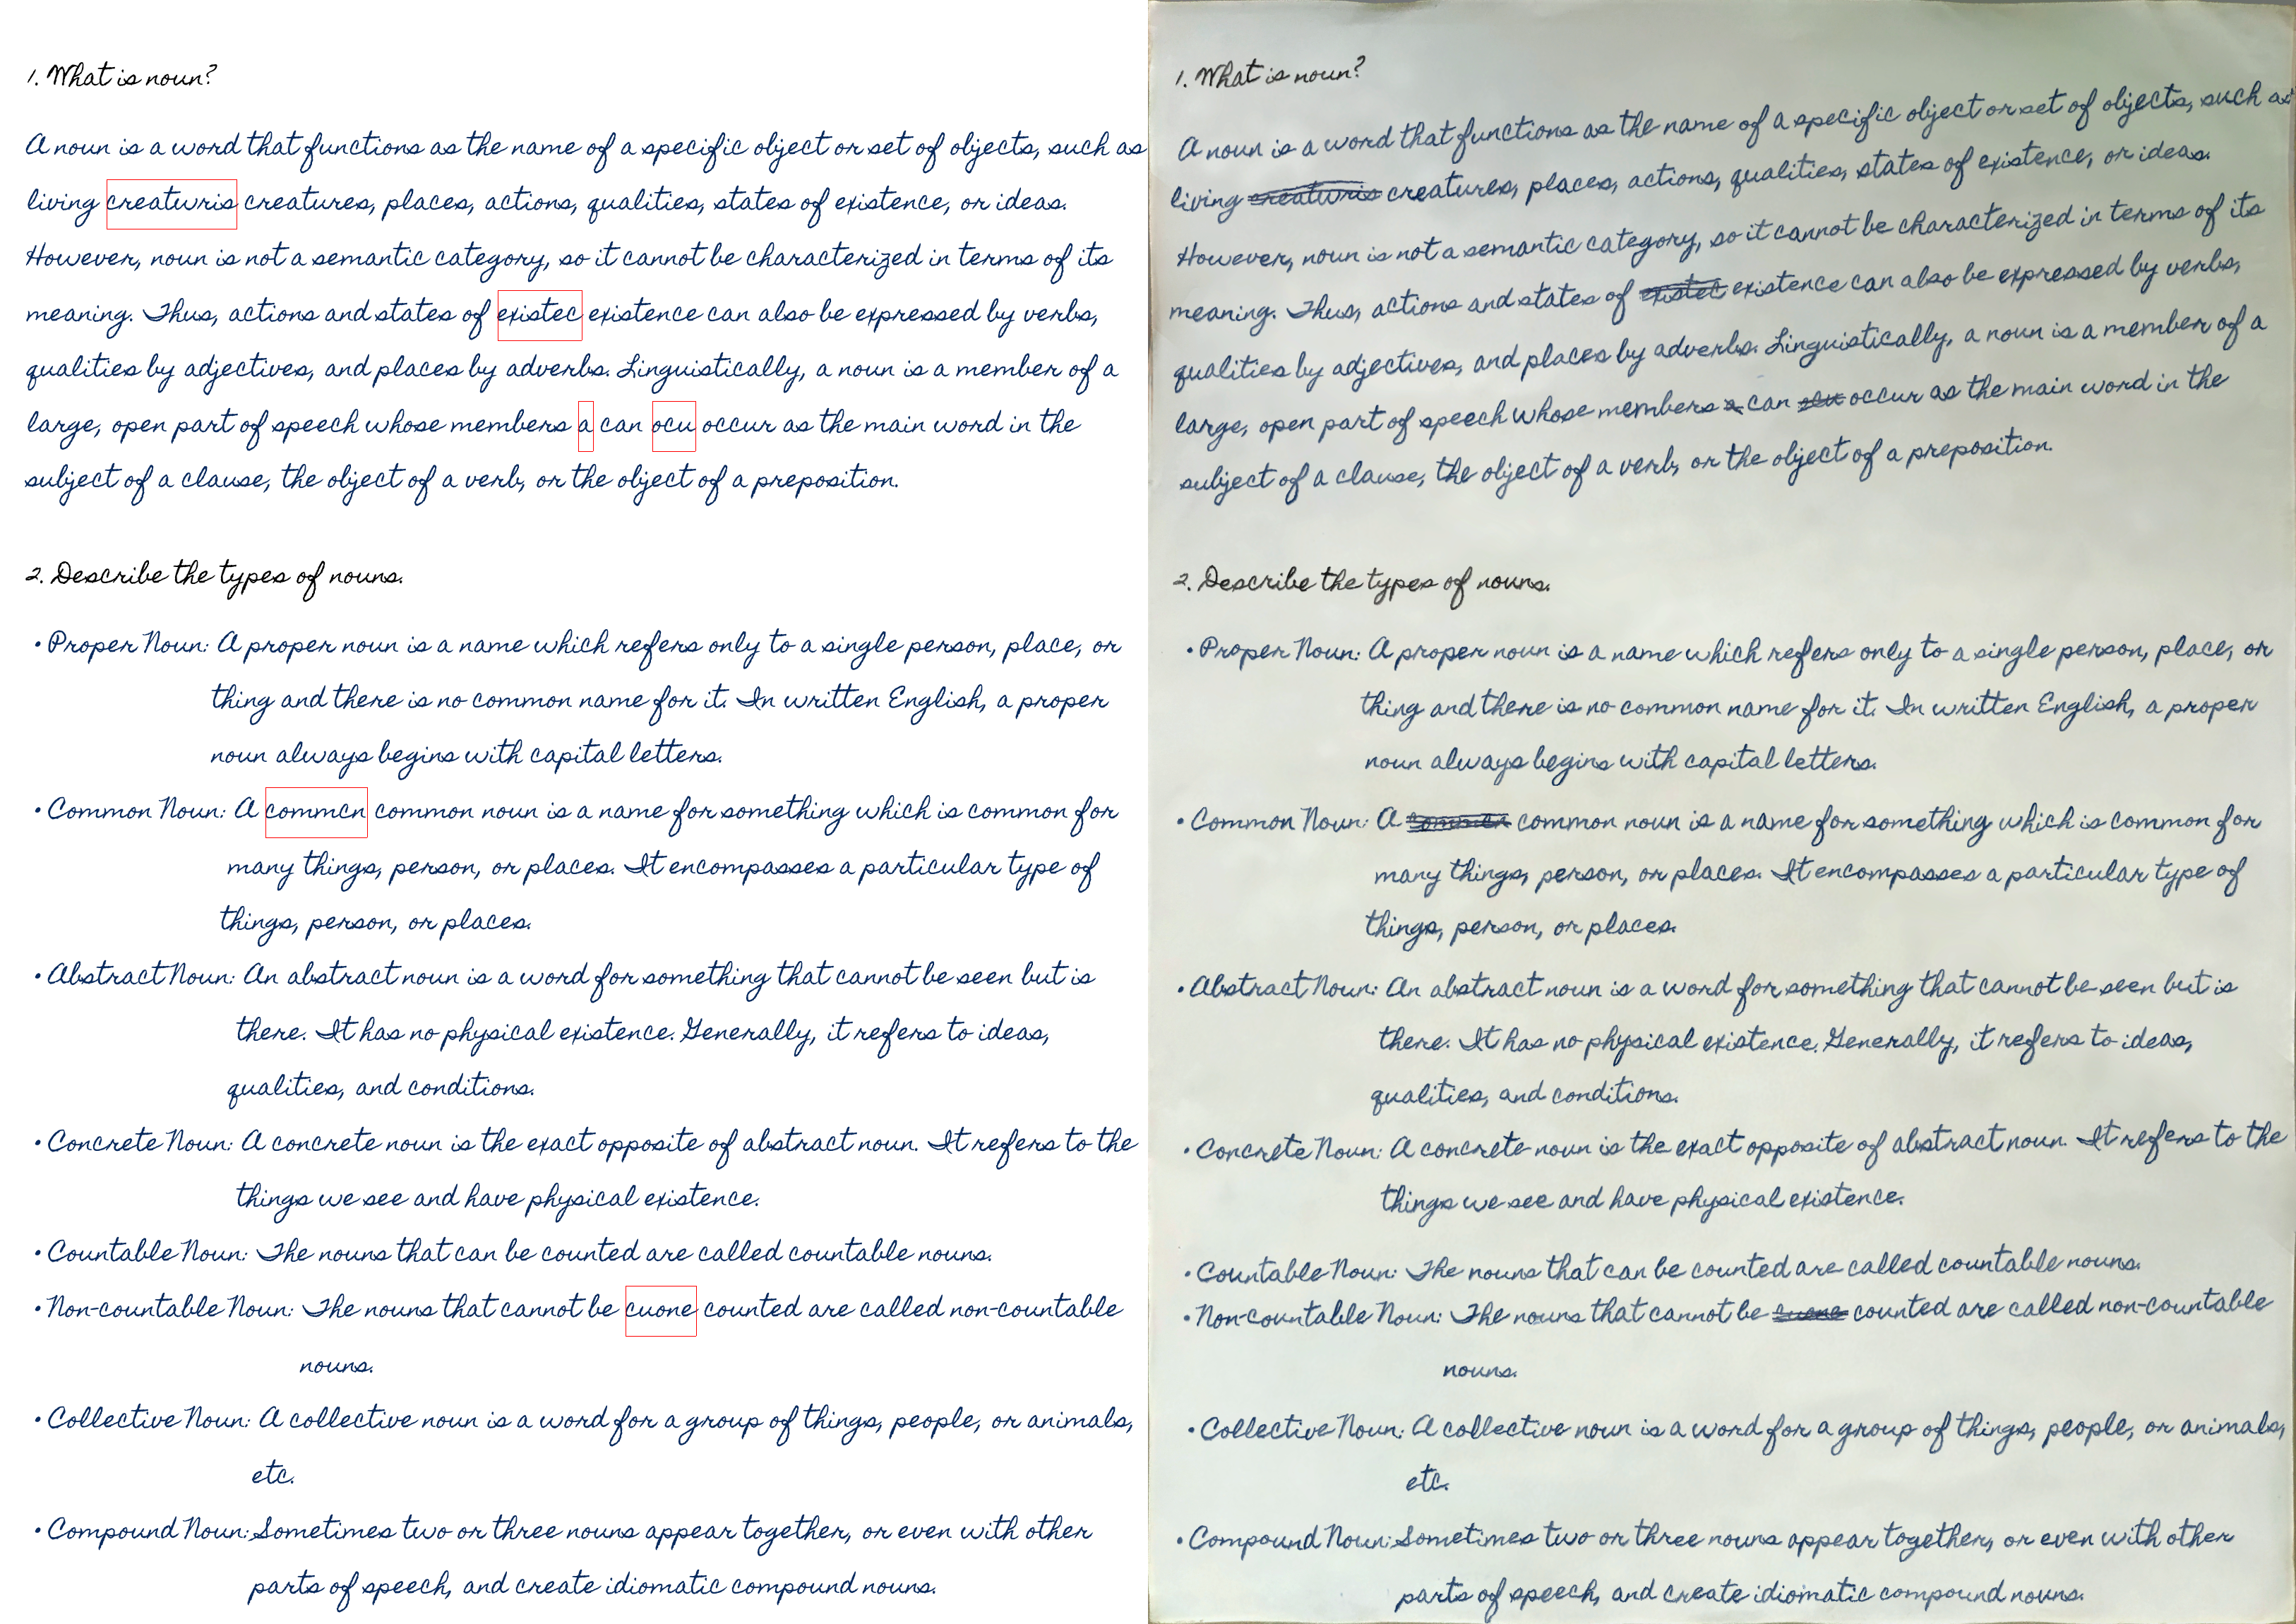 1. What is noun?
A noun is a word that functions as the name of a specific object or set of objects, such as
living creaturis creatures, places, actions, qualities, states of existence, or ideas.
However, noun is not a semantic category, so it cannot be characterized in terms of its
meaning. Thus, actions and states of existec existence can also be expressed by verbs,
qualities by adjectives, and places by adverbs. Linguistically, a noun is a member of a
large, open part of speech whose members a can ocu occur as the main word in the
subject of a clause, the object of a verb, or the object of a preposition.
2. Describe the types of nouns.
• Proper Noun: A proper noun is a name which refers only to a single person, place, or
thing and there is no common name for it. In written English, a proper
noun always begins with capital letters.
• Common Noun: A commcn common noun is a name for something which is common for
many things, person, or places. It encompasses a particular type of
things, person, or places.
• Abstract Noun: An abstract noun is a word for something that cannot be seen but is
there. It has no physical existence. Generally, it refers to ideas,
qualities, and conditions.
• Concrete Noun: A concrete noun is the exact opposite of abstract noun. It refers to the
things we see and have physical existence.
• Countable Noun: The nouns that can be counted are called countable nouns.
• Non-countable Noun: The nouns that cannot be cuone counted are called non-countable
nouns.
• Collective Noun: A collective noun is a word for a group of things, people, or animals,
etc.
• Compound Noun: Sometimes two or three nouns appear together, or even with other
parts of speech, and create idiomatic compound nouns.
1. What is noun?
A noun is a word that functions as the name of a specific object or set of objects, such as
living creaturis creatures, places, actions, qualities, states of existence, or ideas.
However, noun is not a semantic category, so it cannot be characterized in terms of its
meaning. Thus, actions and states of existec existence can also be expressed by verbs,
qualities by adjectives, and places by adverbs. Linguistically, a noun is a member of a
large, open part of speech whose members a can ocu occur as the main word in the
subject of a clause, the object of a verb, or the object of a preposition.
2. Describe the types of nouns.
• Proper Noun: A proper noun is a name which refers only to a single person, place, or
thing and there is no common name for it. In written English, a proper
noun always begins with capital letters.
• Common Noun: A commcn common noun is a name for something which is common for
many things, person, or places. It encompasses a particular type of
things, person, or places.
• Abstract Noun: An abstract noun is a word for something that cannot be seen but is
there. It has no physical existence. Generally, it refers to ideas,
qualities, and conditions.
• Concrete Noun: A concrete noun is the exact opposite of abstract noun. It refers to the
things we see and have physical existence.
• Countable Noun: The nouns that can be counted are called countable nouns.
• Non-countable Noun: The nouns that cannot be cuone counted are called non-countable
nouns.
• Collective Noun: A collective noun is a word for a group of things, people, or animals,
etc.
• Compound Noun: Sometimes two or three nouns appear together, or even with other
parts of speech, and create idiomatic compound nouns.